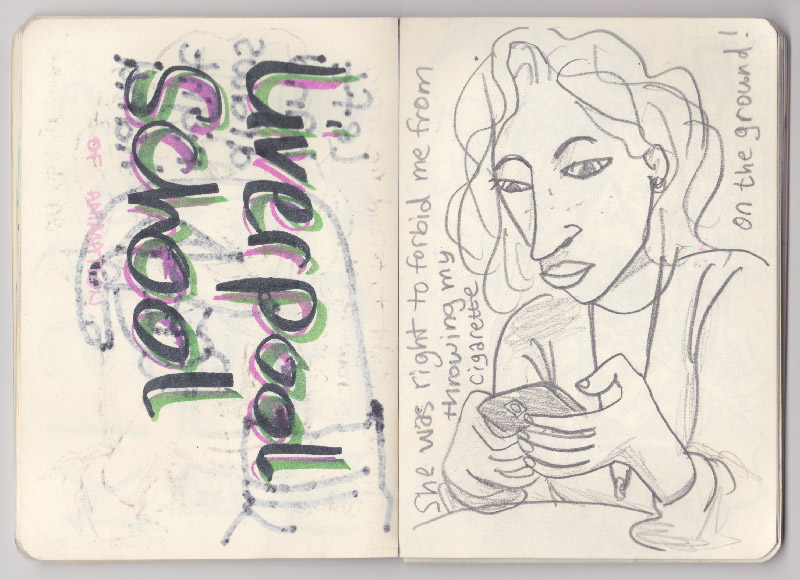 Liverpool
School
OF ANIMATION
She was right to forbid me from
throwing my
cigarette
on the ground!